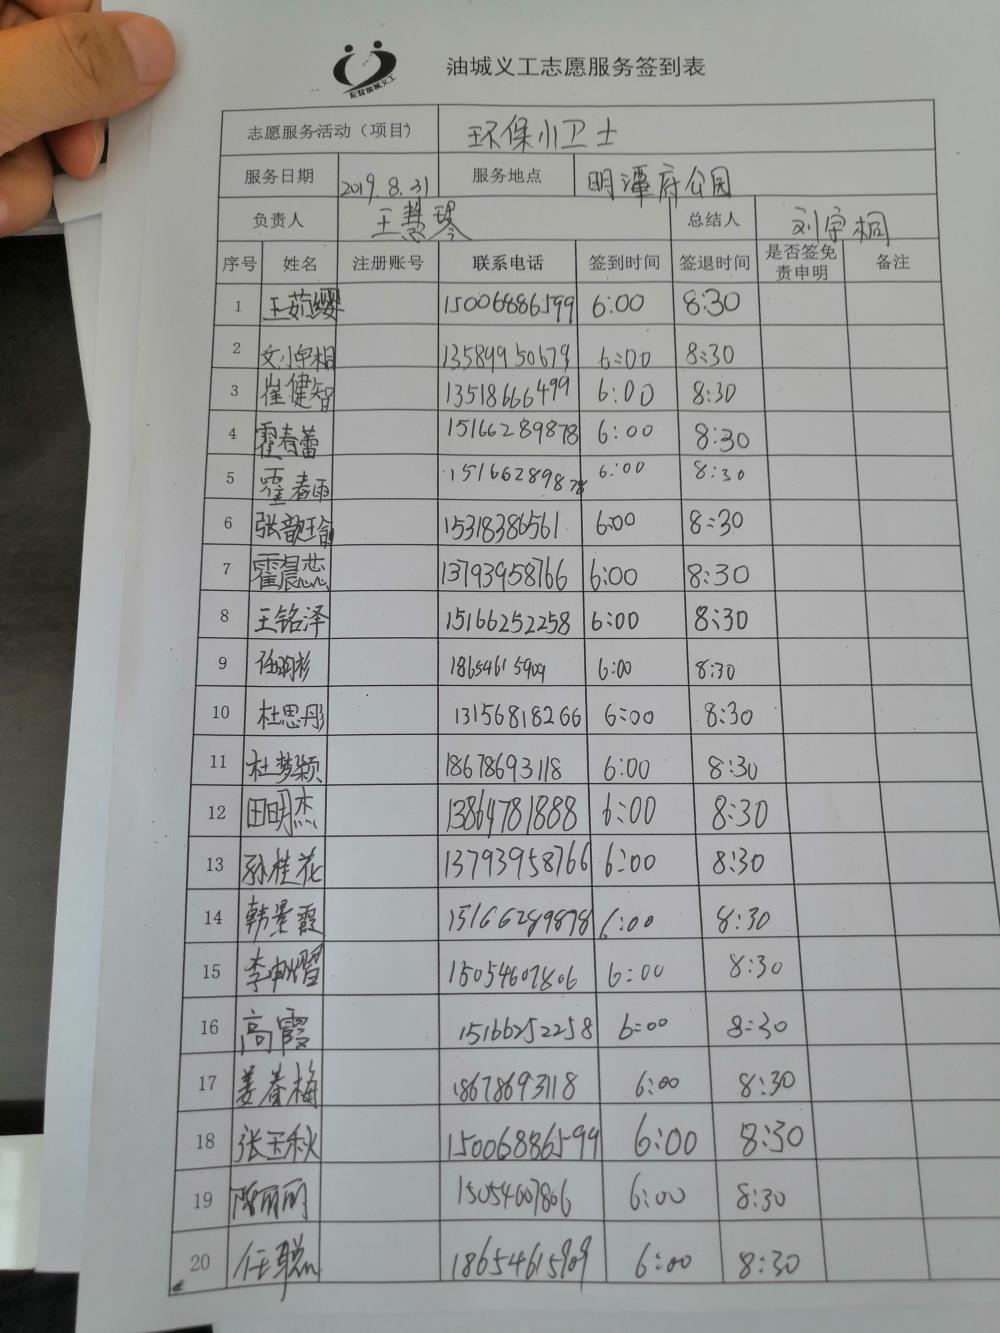 东营油城义工
油城义工志愿服务签到表
志愿服务活动（项目） 环保小卫士
服务日期 2019.8.31 服务地点 明潭府公园
负责人 王慧琴 总结人 刘宇桐
序号 姓名 注册账号 联系电话 签到时间 签退时间 是否签免责申明 备注
1 王茹缨 15006886599 6:00 8:30
2 刘宇桐 13589950679 6:00 8:30
3 崔健智 13518666499 6:00 8:30
4 霍春蕾 15166289878 6:00 8:30
5 霍春雨 15166289878 6:00 8:30
6 张歆瑜 15318386561 6:00 8:30
7 霍晨恋 13793958766 6:00 8:30
8 王铭泽 15166252258 6:00 8:30
9 任明杉 18654615909 6:00 8:30
10 杜思彤 13156818266 6:00 8:30
11 杜梦颖 18678693118 6:00 8:30
12 田明杰 13864781888 6:00 8:30
13 孙桂花 13793958766 6:00 8:30
14 韩景霞 15166289878 6:00 8:30
15 李 15054607806 6:00 8:30
16 高霞 15166252258 6:00 8:30
17 姜春梅 18678693118 6:00 8:30
18 张玉秋 15006886599 6:00 8:30
19 陈丽丽 15054607806 6:00 8:30
20 任聪 18654615909 6:00 8:30